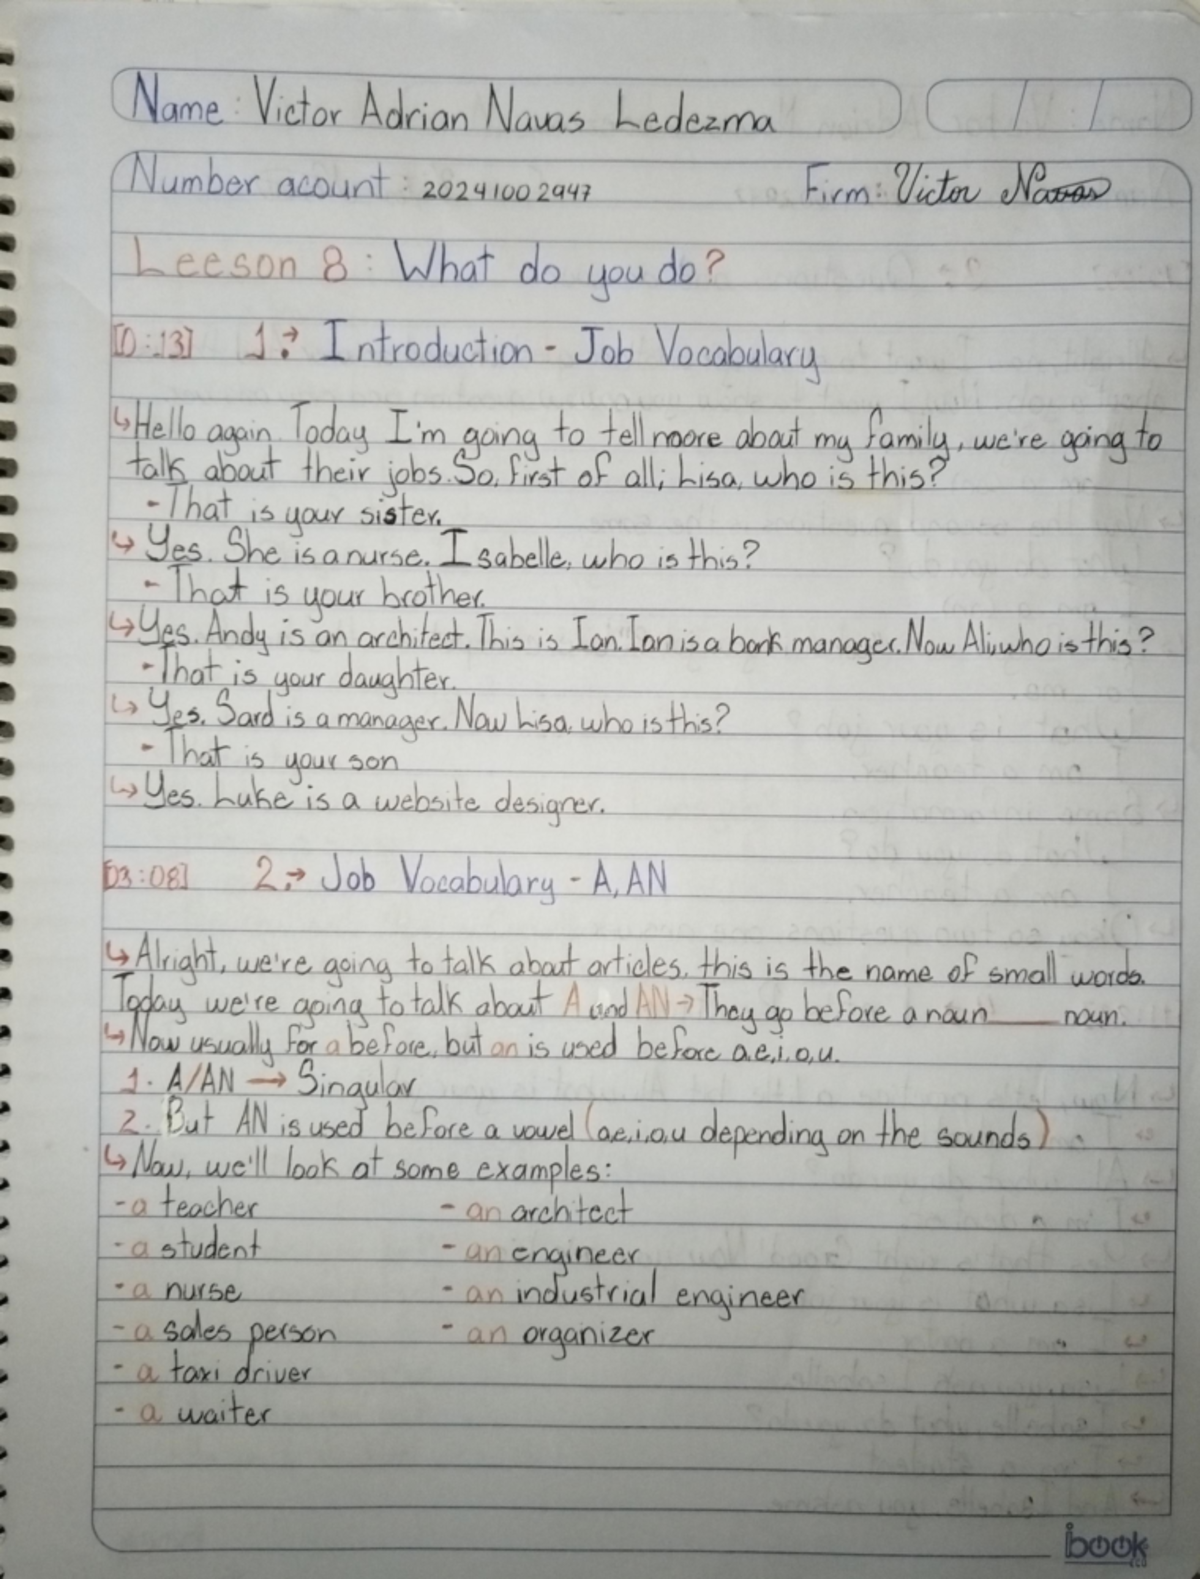 Name: Victor Adrian Navas Ledezma
Number acount: 20241002947 Firm: Victor Navas
Leeson 8: What do you do?
[0:13] 1.→ Introduction - Job Vocabulary
↳Hello again. Today I'm going to tell more about my family, we're going to
talk about their jobs. So, first of all; Lisa, who is this?
-That is your sister.
↳ Yes. She is a nurse. Isabelle, who is this?
- That is your brother.
↳Yes. Andy is an architect. This is Ian. Ian is a bank manager. Now Ali, who is this?
-That is your daughter.
↳ Yes. Sard is a manager. Now Lisa, who is this?
- That is your son
↳Yes. Luke is a website designer.
[03:08] 2.→ Job Vocabulary - A, AN
↳Alright, we're going to talk about articles. this is the name of small words.
Today we're going to talk about A and AN → They go before a noun ____ noun.
↳Now usually for a before, but an is used before a,e,i,o,u.
1. A/AN → Singular
2. But AN is used before a vowel (a,e,i,o,u depending on the sounds)
↳Now, we'll look at some examples:
-a teacher - an architect
-a student - an engineer
-a nurse - an industrial engineer
-a sales person - an organizer
-a taxi driver
-a waiter
ibook
eco